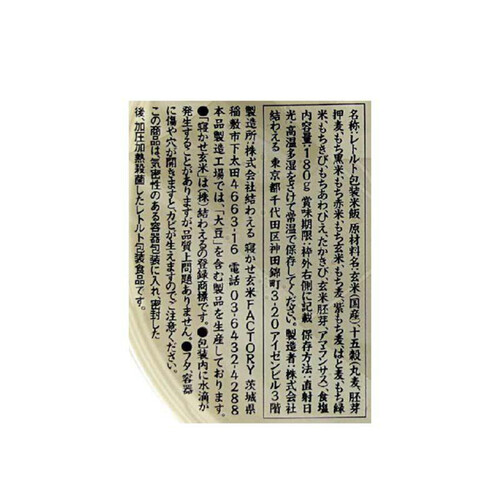 名称:レトルト包装米飯 原材料名:玄米(国産)、十五穀(丸麦、胚芽
押麦、もち黒米、もち赤米、もち玄米、もち麦、紫もち麦、はと麦、もち緑
米、もちきび、もちあわ、ひえ、たかきび、玄米胚芽、アマランサス)、食塩
内容量:180g 賞味期限:枠外右側に記載 保存方法:直射日
光・高温多湿をさけて常温で保存してください。製造者:株式会社
結わえる 東京都千代田区神田錦町3-20アイゼンビル3階
製造所:株式会社結わえる 寝かせ玄米FACTORY 茨城県
稲敷市下太田4663-16 電話 03-6432-4288
本品製造工場では、「大豆」を含む製品を生産しております。
●「寝かせ玄米」は(株)結わえるの登録商標です。●包装内に水滴が
発生することがありますが、品質上問題ありません。●フタ、容器
に傷や穴が開きますと、カビが生えますのでご注意ください。
この商品は、気密性のある容器包装に入れ、密封した
後、加圧加熱殺菌したレトルト包装食品です。